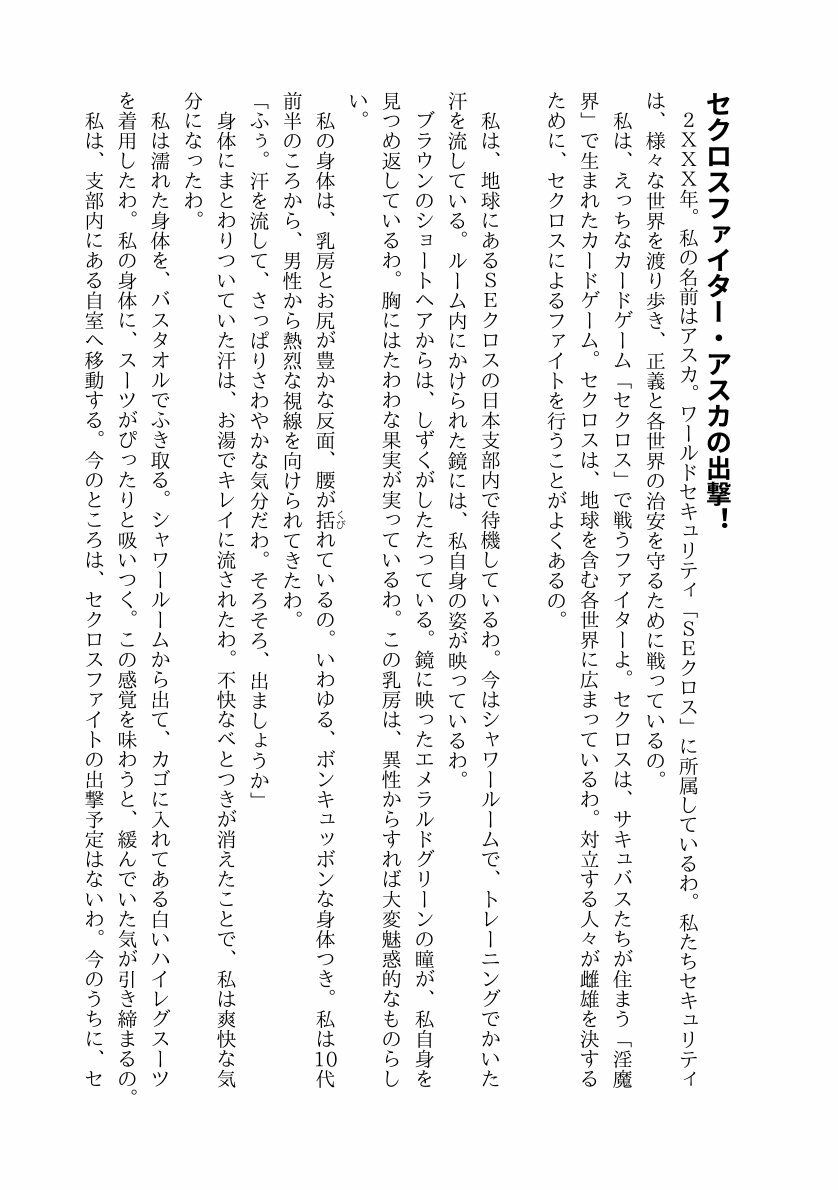 セクロスファイター・アスカの出撃！
２ＸＸＸ年。私の名前はアスカ。ワールドセキュリティ「ＳＥクロス」に所属しているわ。私たちセキュリティ
は、様々な世界を渡り歩き、正義と各世界の治安を守るために戦っているの。
私は、えっちなカードゲーム「セクロス」で戦うファイターよ。セクロスは、サキュバスたちが住まう「淫魔
界」で生まれたカードゲーム。セクロスは、地球を含む各世界に広まっているわ。対立する人々が雌雄を決する
ために、セクロスによるファイトを行うことがよくあるの。
私は、地球にあるＳＥクロスの日本支部内で待機しているわ。今はシャワールームで、トレーニングでかいた
汗を流している。ルーム内にかけられた鏡には、私自身の姿が映っているわ。
ブラウンのショートヘアからは、しずくがしたたっている。鏡に映ったエメラルドグリーンの瞳が、私自身を
見つめ返しているわ。胸にはたわわな果実が実っているわ。この乳房は、異性からすれば大変魅惑的なものらし
い。
私の身体は、乳房とお尻が豊かな反面、腰が括くびれているの。いわゆる、ボンキュッボンな身体つき。私は10代
前半のころから、男性から熱烈な視線を向けられてきたわ。
「ふぅ。汗を流して、さっぱりさわやかな気分だわ。そろそろ、出ましょうか」
身体にまとわりついていた汗は、お湯でキレイに流されたわ。不快なべとつきが消えたことで、私は爽快な気
分になったわ。
私は濡れた身体を、バスタオルでふき取る。シャワールームから出て、カゴに入れてある白いハイレグスーツ
を着用したわ。私の身体に、スーツがぴったりと吸いつく。この感覚を味わうと、緩んでいた気が引き締まるの。
私は、支部内にある自室へ移動する。今のところは、セクロスファイトの出撃予定はないわ。今のうちに、セ